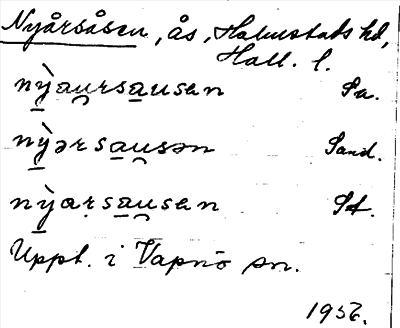 Nyårsåsen, ås, Halmstads hd,
Hall. l.
nỳa̯u̯rsa̲u̯sen Sa.
nỳərsa̲u̯sən Sand.
nỳarsa̲u̯sen St.
Uppt. i Vapnö sn.
1936.